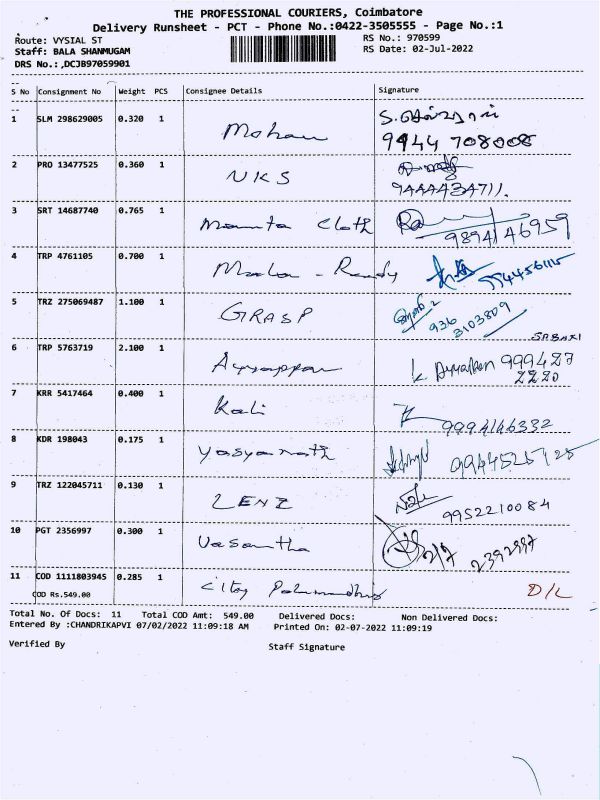 THE PROFESSIONAL COURIERS, Coimbatore
Delivery Runsheet - PCT - Phone No.:0422-3505555 - Page No.:1
Route: VYSIAL ST RS No.: 970599
Staff: BALA SHANMUGAM RS Date: 02-Jul-2022
DRS No.:,DCJB97059901
S No Consignment No Weight PCS Consignee Details Signature
1 SLM 298629005 0.320 1 Mohan
9944 708008
2 PRO 13477525 0.360 1 NKS
9444434711.
3 SRT 14687740 0.765 1 Mamta Cloth
9894146959
4 TRP 4761105 0.700 1 Mala - Ready
5 TRZ 275069487 1.100 1 GRASP
936
3103809
SABARI
6 TRP 5763719 2.100 1 Ayyappan 999427
2220
7 KRR 5417464 0.400 1 Kali
9994146332
8 KDR 198043 0.175 1 Yasyanath
9 TRZ 122045711 0.130 1 LENZ
9952210084
10 PGT 2356997 0.300 1 Vasantha 2/7 2392997
11 COD 1111803945 0.285 1 City D/L
COD Rs.549.00
Total No. Of Docs: 11 Total COD Amt: 549.00 Delivered Docs: Non Delivered Docs:
Entered By :CHANDRIKAPVI 07/02/2022 11:09:18 AM Printed On: 02-07-2022 11:09:19
Verified By Staff Signature